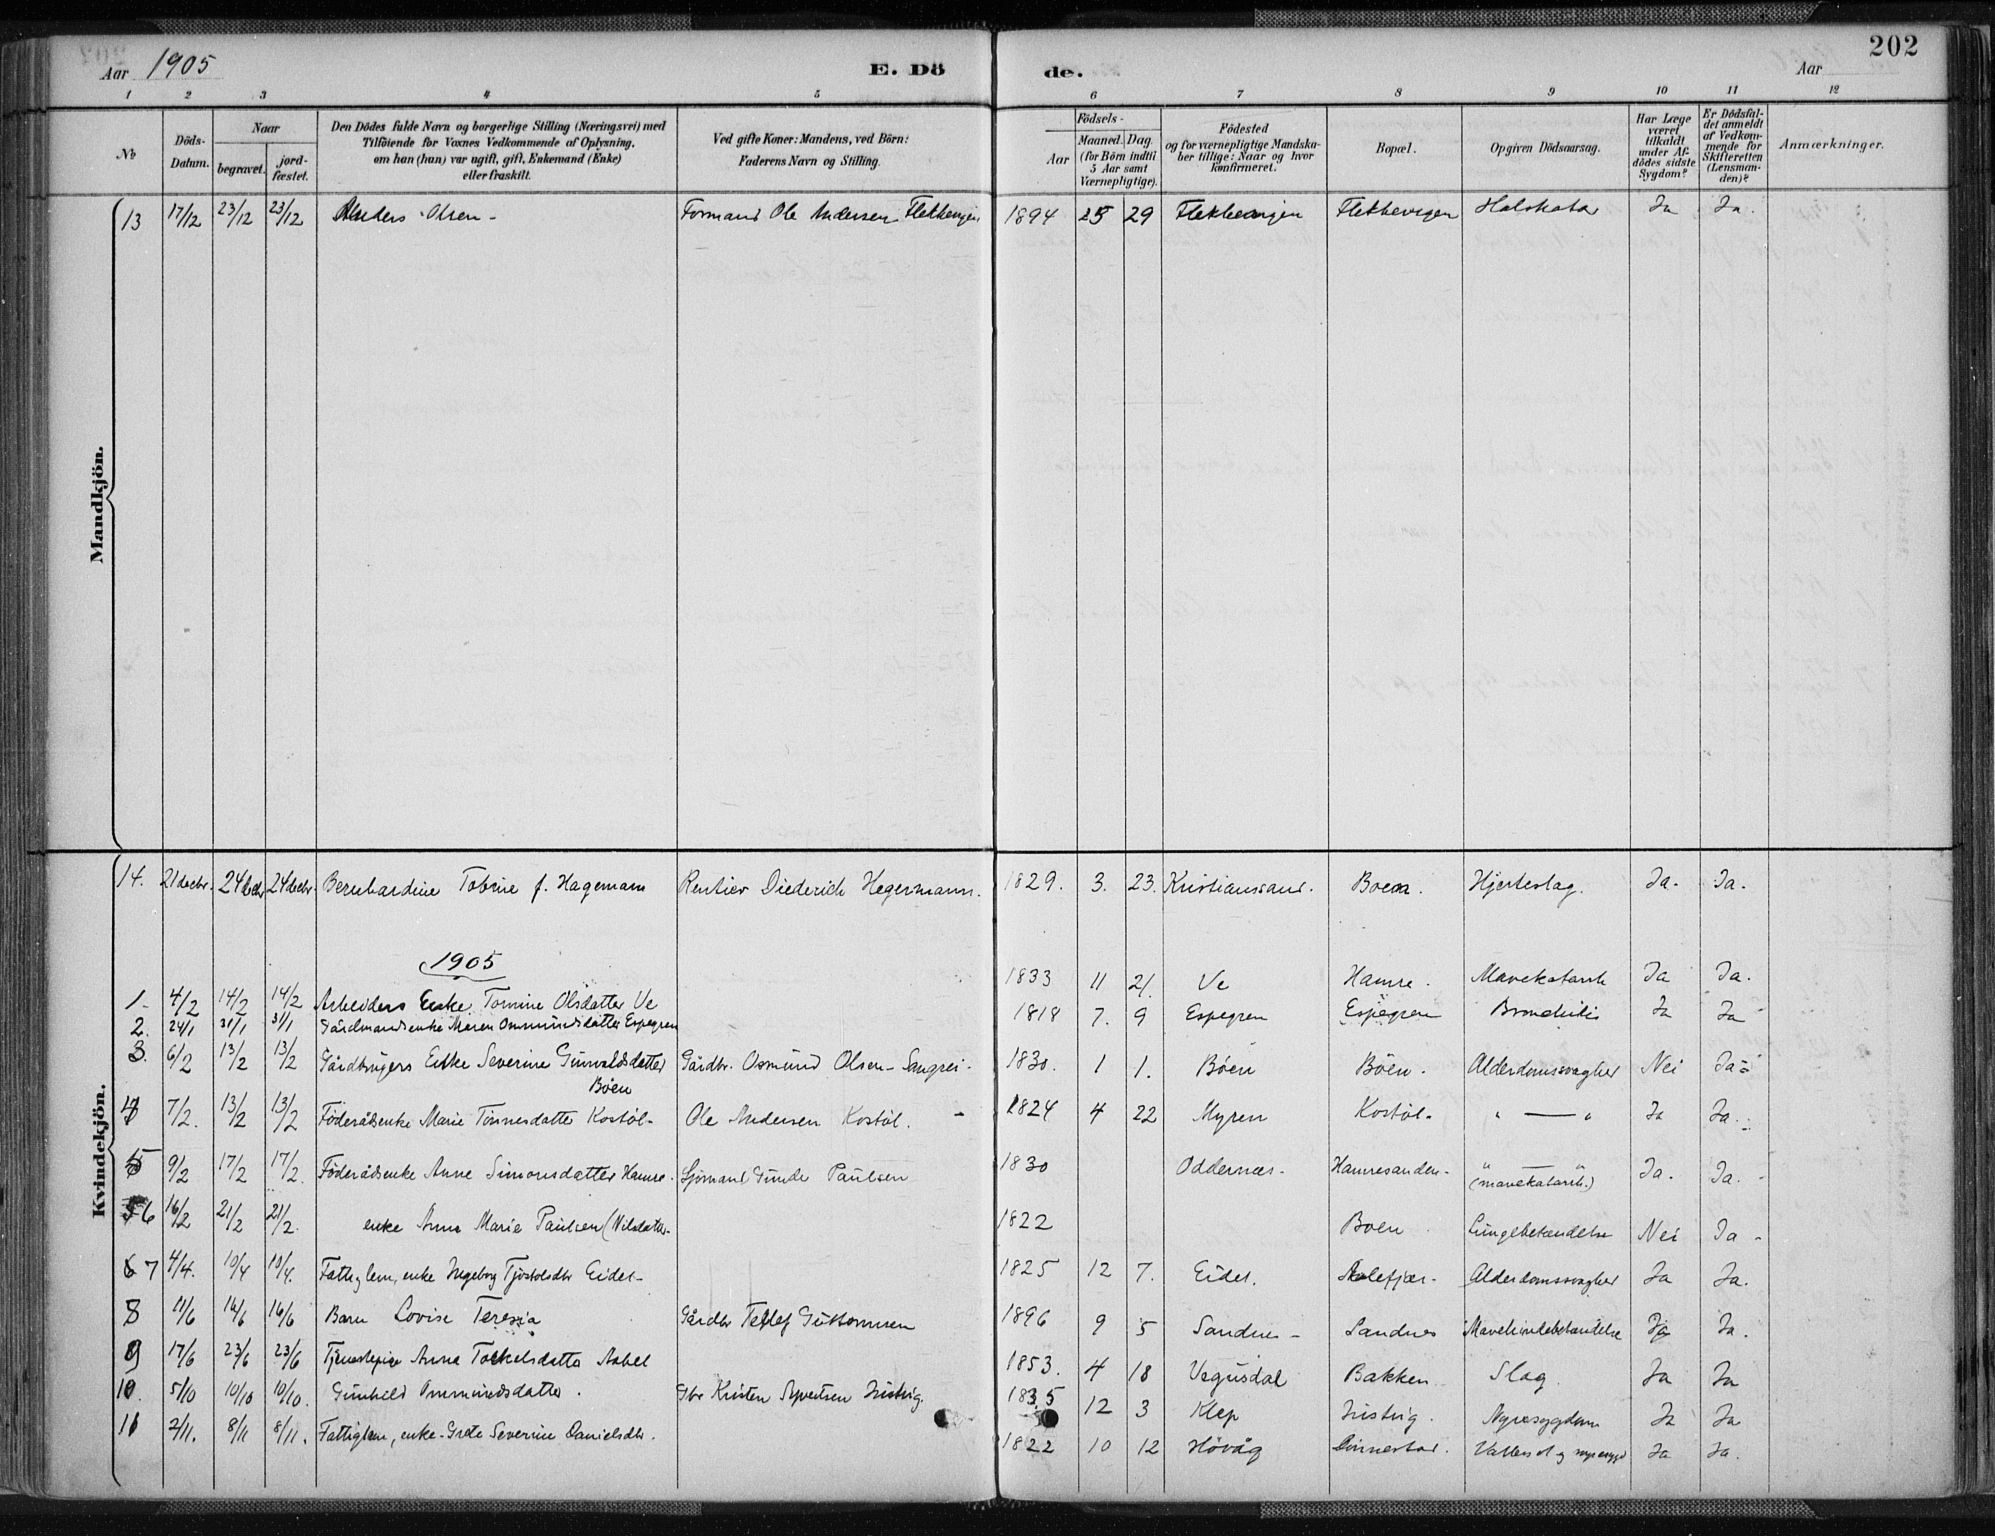 202
Aar 1905
E. Dö
de.
Aar
1 2 3 4 5 6 7 8 9 10 11 12
No
Döds-Datum.
Naar
begravet.
jord-fæstet.
Den Dödes fulde Navn og borgerlige Stilling (Næringsvei) med
Tilföiende for Voxnes Vedkommende af Oplysning,
om han (hun) var ugift, gift, Enkemand (Enke)
eller fraskilt.
Ved gifte Koner: Mandens, ved Börn:
Faderens Navn og Stilling.
Födsels-
Aar
Maaned. Dag
(for Börn indtil
5 Aar samt
Værnepligtige).
Födested
og for værnepligtige Mandska-
ber tillige: Naar og hvor
konfirmeret.
Bopæl.
Opgiven Dödsaarsag.
Har Læge
været
tilkaldt
under Af-
dödes sidste
Sygdom?
Er Dödsfal-
det anmeldt
af Vedkom-
mende for
Skifteretten
(Lensman-
den)?
Anmærkninger.
Mandkjön.
13 17/12 23/12 23/12 Anders Olsen - Formand Ole Andersen Flekkevigen 1894 25 29 Flekkevigen Flekkevigen Ja Ja.
Kvindekjön.
14. 21 decbr. 24 decbr 24 decbr. Bernhardine Tobine f. Hagemann Rentier Diederich Hegermann. 1829. 3. 23. Kristianssand. Boen. Hjerteslag. Ja. Ja.
1905
1. 4/2 14/2 14/2 Arbeiders Enke Tomine Olsdatter Ve 1833 11 21. Ve Hamre. Mavekatarrh Ja Ja.
2. 24/1 31/1 31/1 Gårdmandsenke Maren Ommundsdatter Espegren 1818 7. 9 Espegren Espegren Bronchitis Ja Ja
3. 6/2 13/2 13/2 Gårdbrugers Enke Severine Gunvaldsdatter Gårdbr. Osmund Olsen - 1830. 1 1. Böen Böen. Alderdomssvaghed Nei Ja
Böen
4 7/2. 13/2 13/2 Föderådsenke Marie Tönnesdatter Kostöl- Ole Andersen Kostöl. 1824 4 22 Myren Kostöl. " — " Ja Ja.
5 9/2 17/2 17/2. Föderådsenke Anne Simonsdatter Hamre. Sjömand Gunde Paulsen 1830 Oddernæs- Hamresanden- " — "
(mavekatarrh.) Ja. Ja.
6 16/2 21/2 21/2. enke Anne Marie Paulsen (Nilsdatter- 1822 Boen Lungebetændelse Nei Ja -
7 4/4. 10/4 10/4. Fattiglem, enke Ingeborg Tjöstolsdtr Eidet- 1825 12 7. Eidet. Aalefjær- Alderdomssvaghed Ja Ja.
8 11/6 16/6 16/6 Barn Lovise Teresia Gårdbr Tellef Guttormsen 1896 9 5 Sandnes- Sandnes Mavehindebetændelse Ja Ja.
9 17/6 23/6 23/6 Tjenestepige Anna Torkelsdatter Aabel 1853. 4 18 Vegusdal Bakken Slag. Ja Ja
10. 5/10 10/10 10/10. Gunhild Ommundsdatter. Gbr Kristen Syvertsen Justvig. 1835 12 3 Klep Justvig. Nyresygdom Ja Ja
11 2/11. 8/11 8/11. Fattiglem, enke Grete Severine Danielsdtr. 1822 10 12 Hövåg Vattersot og nyresygd Ja Ja.